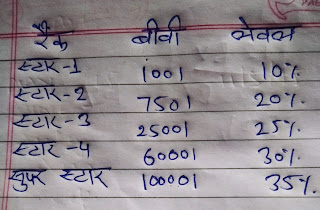 रैंक बीवी लेवल
स्टार-1 1001 10%
स्टार-2 7501 20%
स्टार-3 25001 25%
स्टार-4 60001 30%
सुपर स्टार 100001 35%